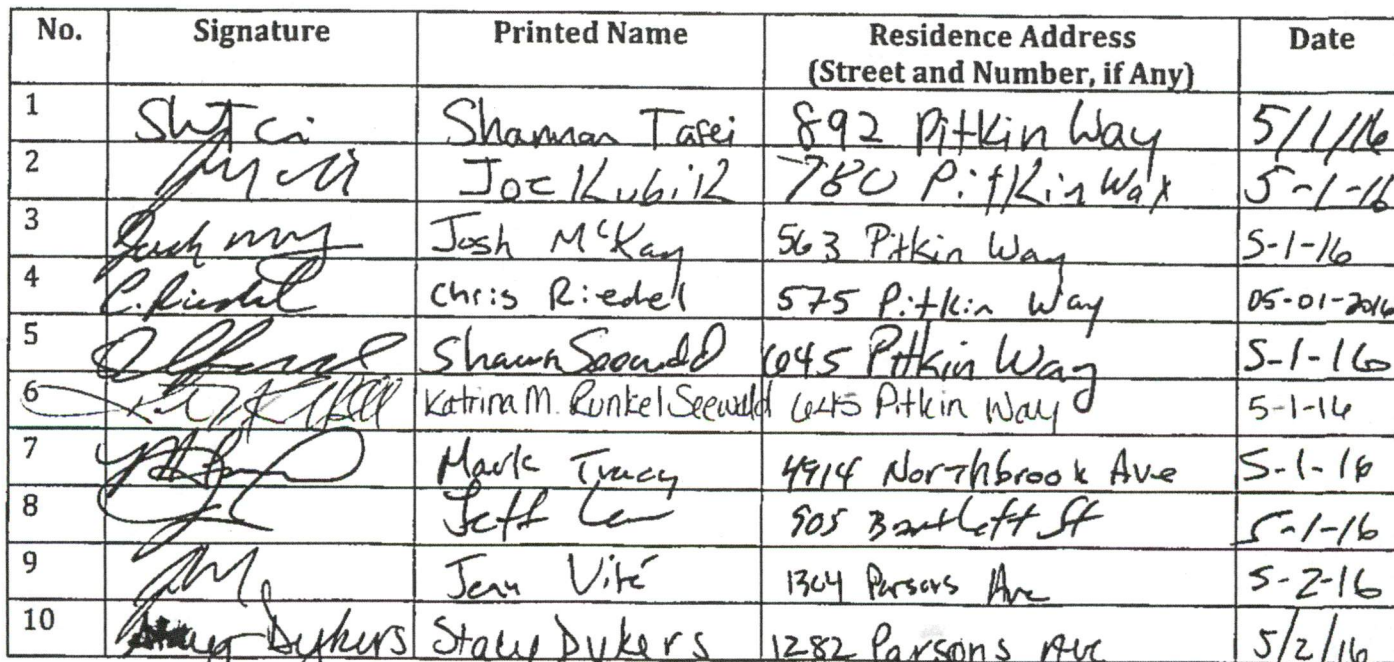 No. Signature Printed Name Residence Address Date
(Street and Number, if Any)
1 Shannon 892 Pitkin Way 5/1/16
2 Joe Kubik 780 Pitkin Way 5-1-16
3 Josh McKay 563 Pitkin Way 5-1-16
4 C. Riedel Chris Riedel 575 Pitkin Way 05-01-2016
5 Shawn Seewald 645 Pitkin Way 5-1-16
6 Katrina M. Runkel Seewald 645 Pitkin Way 5-1-16
7 Mark Tracy 4914 Northbrook Ave 5-1-16
8 Jeff 905 Bartlett St 5-1-16
9 Vité 1304 Parsons Ave 5-2-16
10 Dykers Stacy Dykers 1282 Parsons Ave 5/2/16